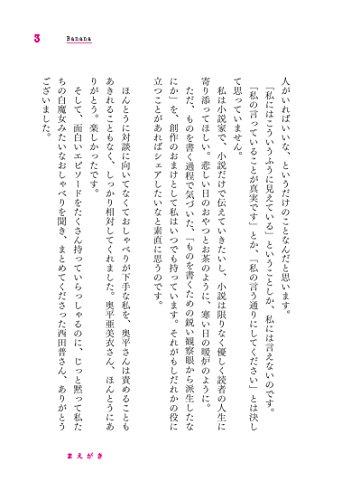 3
Banana
人がいればいいな、というだけのことなんだと思います。
「私にはこういうふうに見えている」ということしか、私には言えないのです。
「私の言っていることが真実です」とか、「私の言う通りにしてください」とは決し
て思っていません。
私は小説家で、小説だけで伝えていきたいし、小説は限りなく優しく読者の人生に
寄り添ってほしい。悲しい日のおやつとお茶のように、寒い日の暖炉のように。
ただ、ものを書く過程で気づいた、「ものを書くための鋭い観察眼から派生したな
にか」を、創作のおまけとして私はいつでも持っています。それがもしだれかの役に
立つことがあればシェアしたいなと素直に思うのです。
ほんとうに対談に向いてなくておしゃべりが下手な私を、奥平さんは責めることも
あきれることもなく、しっかり相対してくれました。奥平亜美衣さん、ほんとうにあ
りがとう。楽しかったです。
そして、面白いエピソードをたくさん持っていらっしゃるのに、じっと黙って私た
ちの白魔女みたいなおしゃべりを聞き、まとめてくださった西田普さん、ありがとう
ございました。
まえがき